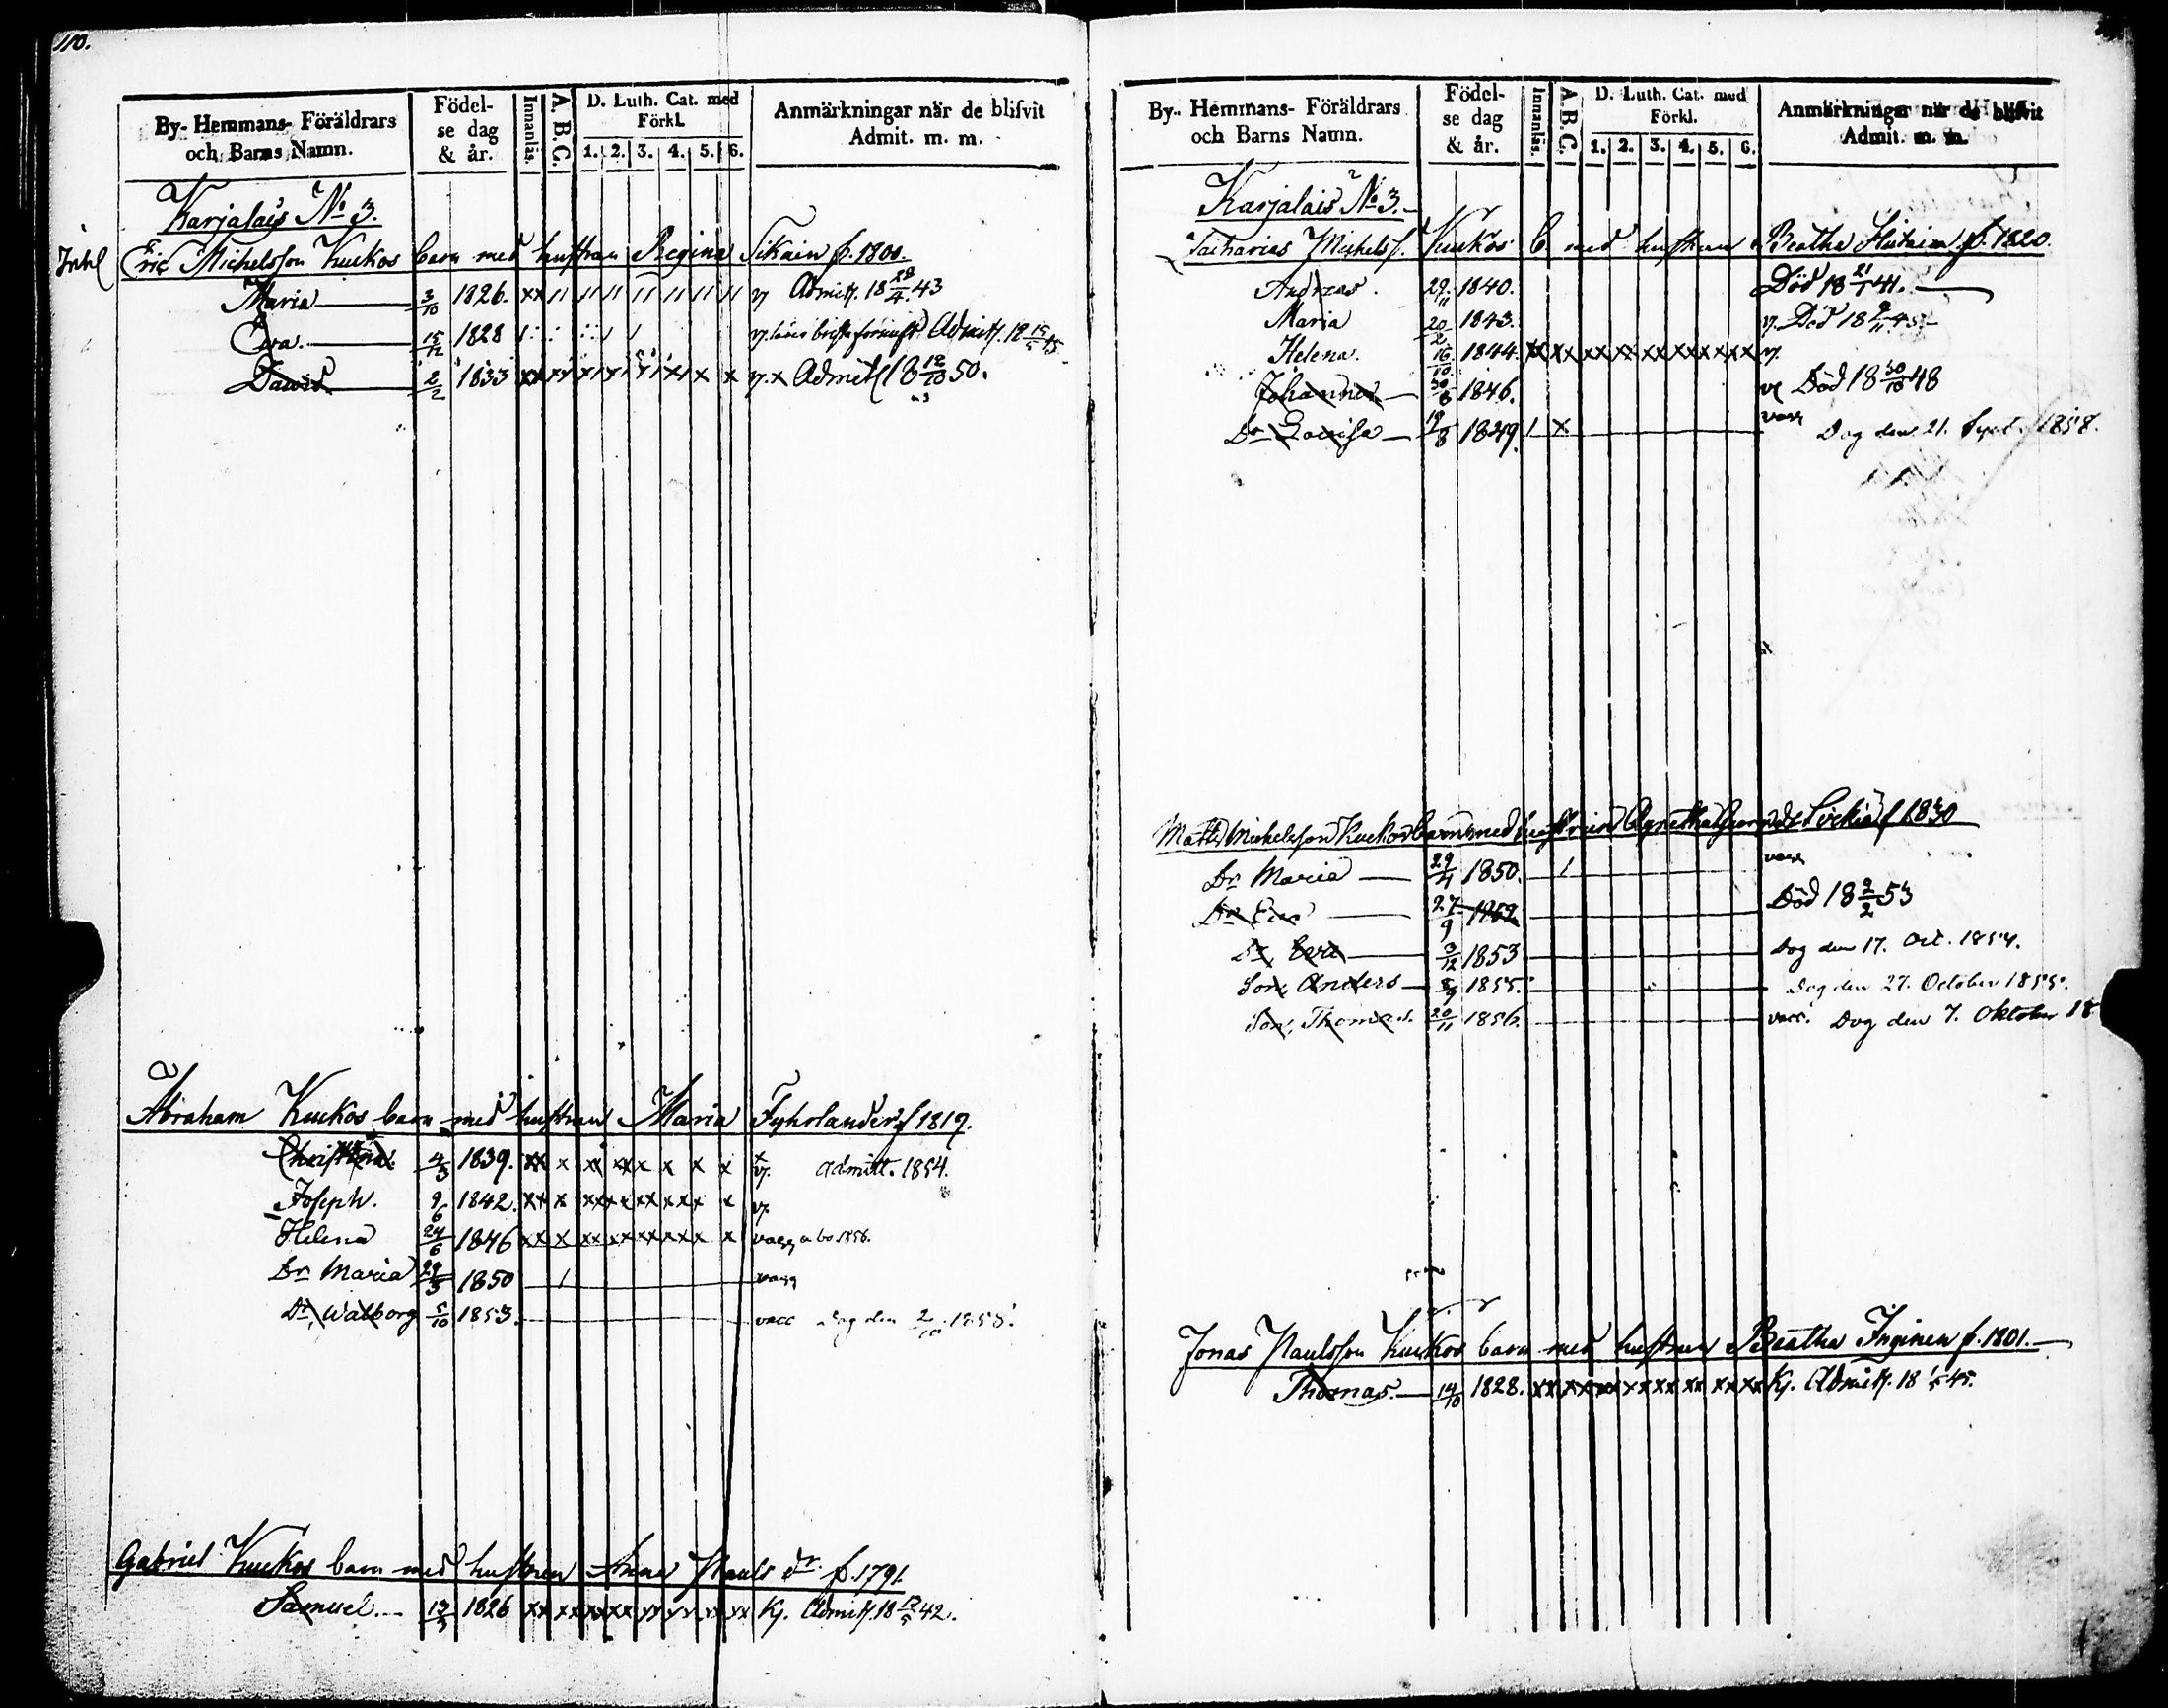 110.
By- Hemmans- Föräldrars och Barns Namn. Födelse dag & år. Innanläs. A. B. C. D. Luth. Cat. med Förkl. 1. 2. 3. 4. 5. 6. Anmärkningar när de blifvit Admit. m. m.
Karjalais No 3.
Eric Michelsson Kuckos barn med hustrun Regina Sikain f. 1800.
Maria 3/10 1826. xx 11 11 11 11 11 11 11 v Admitt. 18 28/4 43
Ewa. 15/12 1828 Admitt. 18 15/5 45
Dawid 2/2 1833 v. x Admitt 18 12/10 50.
Abraham Kuckos barn med hustrun Maria Fyhrlander f 1819.
Christina. 4/3 1839. xx x xx xx x x x x v. admitt. 1854.
Joseph. 9/6 1842. v.
Helena 24/6 1846 vacc 1856.
Dr Maria 29/3 1850 1 vacc
Dr Walborg 5/10 1853. vacc Dog den 2/10 1858.
Gabriel Kuckos barn med hustrun Anna Pauls dr f. 1791.
Samuel. 1826 Admitt. 18 12/5 42.
By- Hemmans- Föräldrars och Barns Namn. Födelse dag & år. Innanläs. A. B. C. D. Luth. Cat. med Förkl. 1. 2. 3. 4. 5. 6. Anmärkningar när de blifvit Admit. m. m.
Karjalais No 3.
Zacharias Michelss. Kuckos b. med hustrun Beatha f. 1820.
Andreas. 29/11 1840. Död 18 21/1 41.
Maria 20/2 1843. v. Död 18
Helena. 16/10 1844. v.
Johannes 30/8 1846. v Död 18 30/10 48
Dr Lovisa 19/8 1849. 1 x vacc Dog den 21. Sept. 1858.
Matts Michelsson Kuckos barn med hustrun Agnetha f 1830
Dr Maria 29/4 1850. 1 vacc
Dr Eva 27/9 1852 Död 18 2/2 53
Dr Eva 3/12 1853 Dog den 17. Oct. 1854.
Son Anders 5/9 1855. Dog den 27. October 1855.
Son, Thomas. 20/11 1856. vacc. Dog den 7. Oktober 18
Jonas Paulsson Kuckos barn med hustrun Beatha Inginen f. 1801.
Thomas. 14/10 1828. Admitt. 18 45.